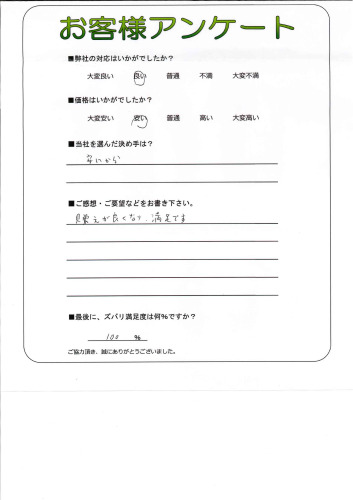 お客様アンケート
■弊社の対応はいかがでしたか？
大変良い 良い 普通 不満 大変不満
■価格はいかがでしたか？
大変安い 安い 普通 高い 大変高い
■当社を選んだ決め手は？
安いから
■ご感想・ご要望などをお書き下さい。
見栄えが良くなって、満足です
■最後に、ズバリ満足度は何％ですか？
100 ％
ご協力頂き、誠にありがとうございました。